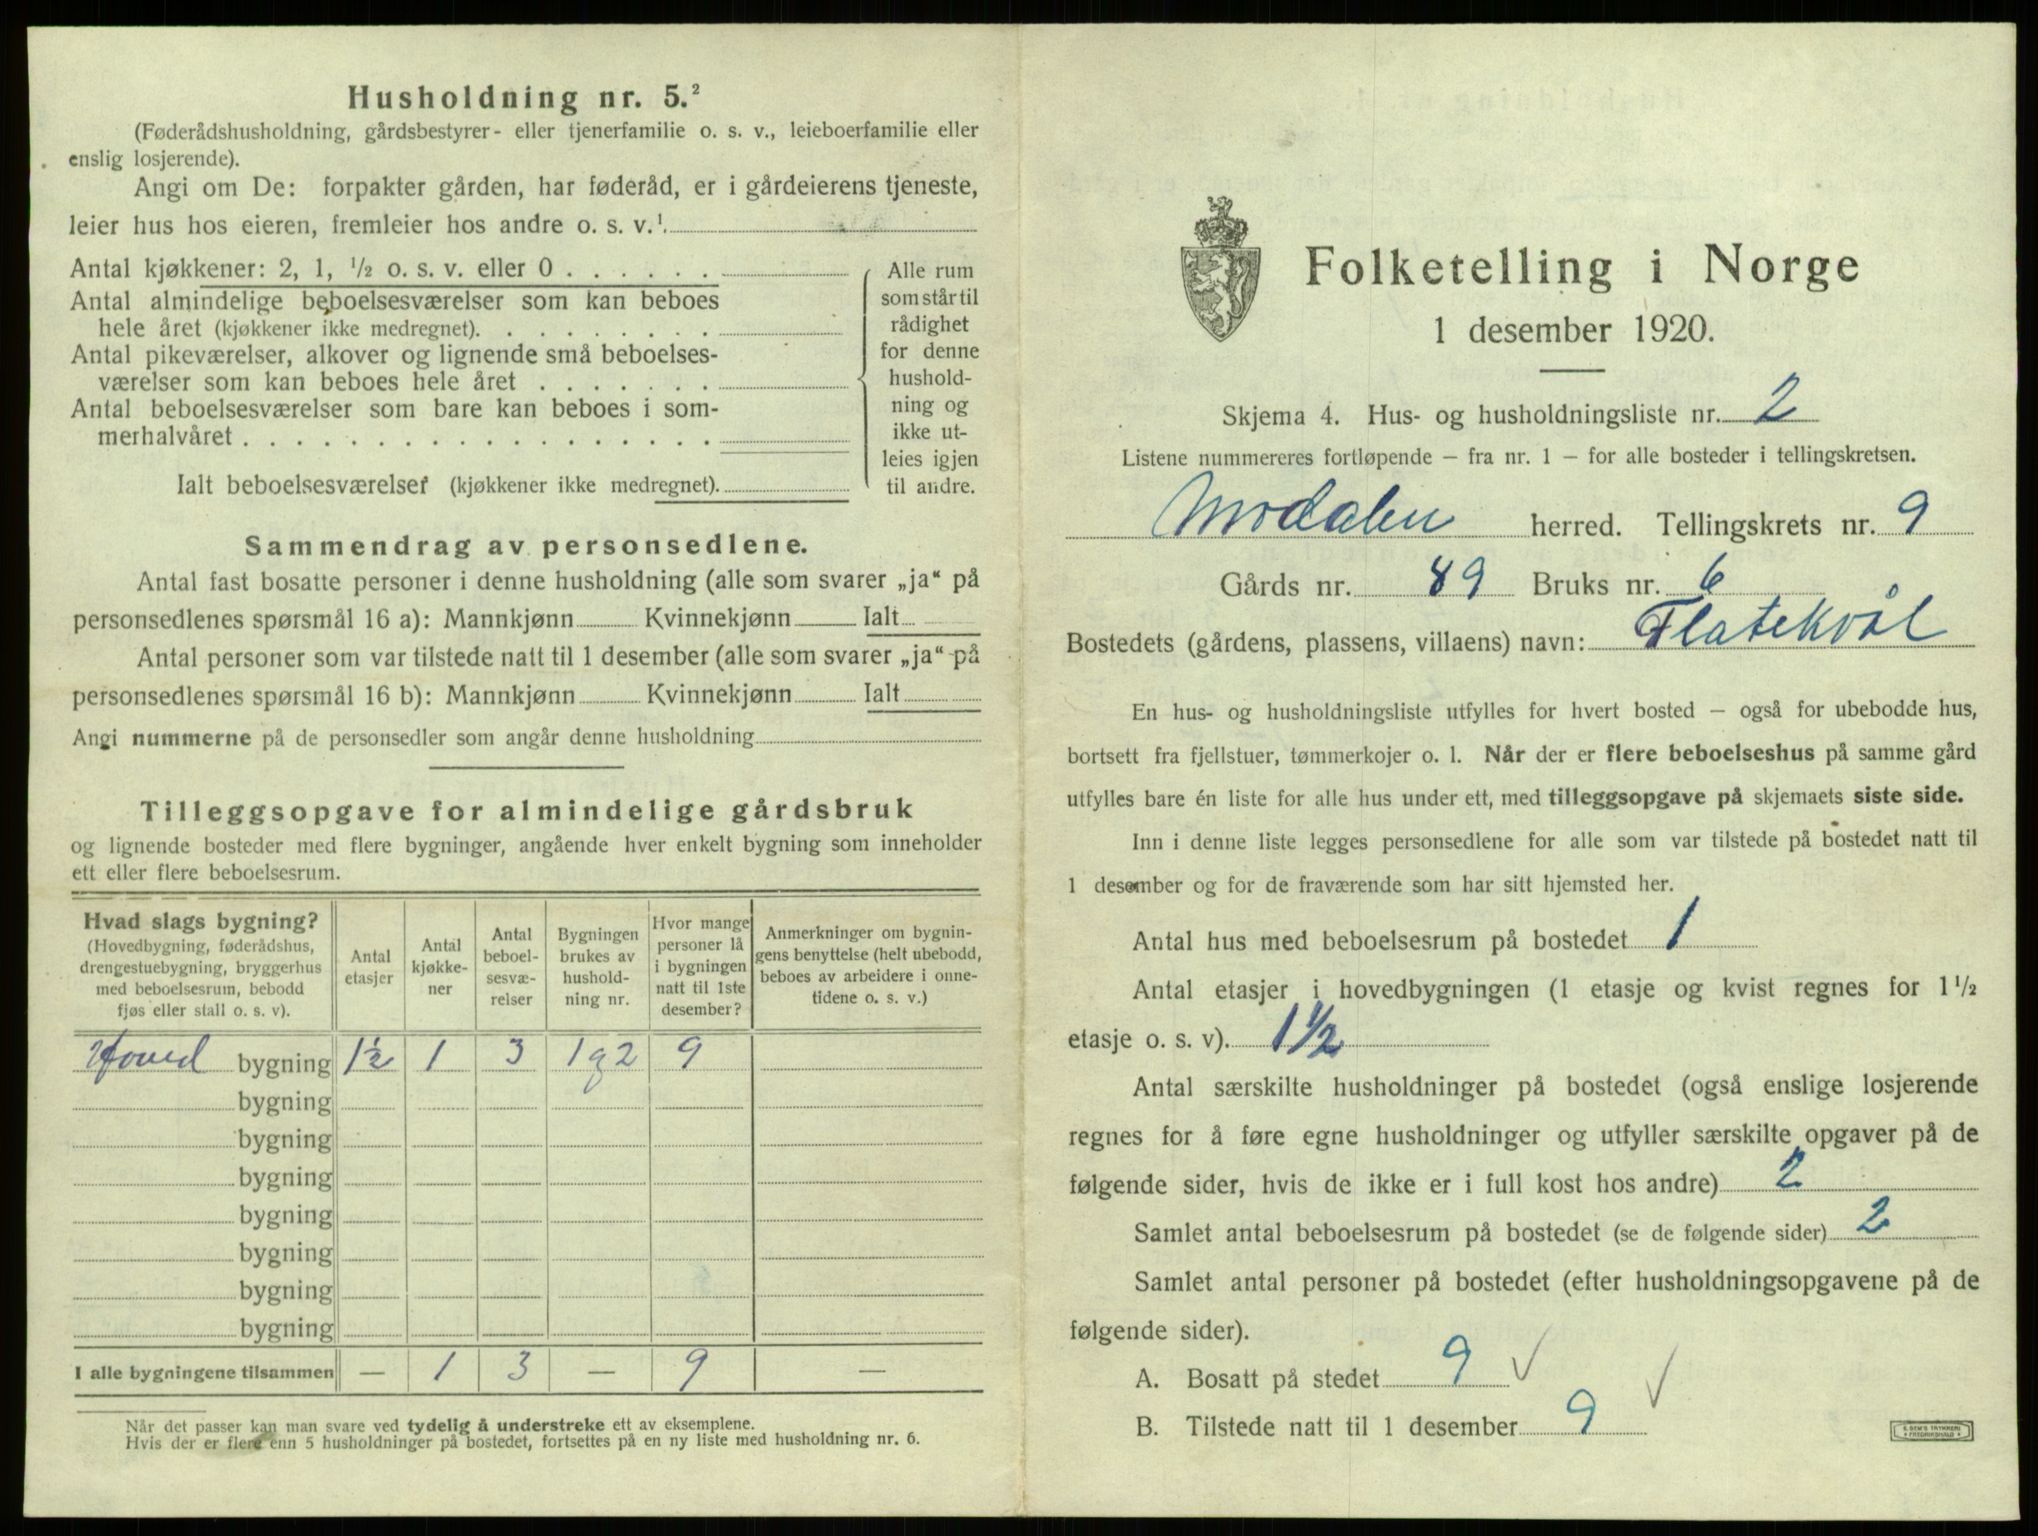 Husholdning nr. 5.²
(Føderådshusholdning, gårdsbestyrer- eller tjenerfamilie o. s. v., leieboerfamilie eller
enslig losjerende).
Angi om De: forpakter gården, har føderåd, er i gårdeierens tjeneste,
leier hus hos eieren, fremleier hos andre o. s. v.¹.
Antal kjøkkener: 2, 1, ½ o. s. v. eller 0
Antal almindelige beboelsesværelser som kan beboes
hele året (kjøkkener ikke medregnet).
Antal pikeværelser, alkover og lignende små beboelses-
værelser som kan beboes hele året
Antal beboelsesværelser som bare kan beboes i som-
merhalvåret
Ialt beboelsesværelser (kjøkkener ikke medregnet).
Alle rum
som står til
rådighet
for denne
hushold-
ning og
ikke ut-
leies igjen
til andre.
Sammendrag av personsedlene.
Antal fast bosatte personer i denne husholdning (alle som svarer „ja“ på
personsedlenes spørsmål 16 a): Mannkjønn Kvinnekjønn Ialt
Antal personer som var tilstede natt til 1 desember (alle som svarer „ja“ på
personsedlenes spørsmål 16 b): Mannkjønn Kvinnekjønn Ialt
Angi nummerne på de personsedler som angår denne husholdning
Tilleggsopgave for almindelige gårdsbruk
og lignende bosteder med flere bygninger, angående hver enkelt bygning som inneholder
ett eller flere beboelsesrum.
Hvad slags bygning?
(Hovedbygning, føderådshus,
drengestuebygning, bryggerhus
med beboelsesrum, bebodd
fjøs eller stall o. s. v).
Antal
etasjer
Antal
kjøkke-
ner
Antal
beboel-
sesvæ-
relser
Bygningen
brukes av
hushold-
ning nr.
Hvor mange
personer lå
i bygningen
natt til 1ste
desember?
Anmerkninger om bygnin-
gens benyttelse (helt ubebodd,
beboes av arbeidere i onne-
tidene o. s. v.)
Hoved bygning 1½ 1 3 1 og 2 9
bygning
bygning
bygning
bygning
bygning
bygning
bygning
I alle bygningene tilsammen — 1 3 — 9 —
Når det passer kan man svare ved tydelig å understreke ett av eksemplene.
Hvis der er flere enn 5 husholdninger på bostedet, fortsettes på en ny liste med husholdning nr. 6.
Folketelling i Norge
1 desember 1920.
Skjema 4. Hus- og husholdningsliste nr. 2
Listene nummereres fortløpende – fra nr. 1 – for alle bosteder i tellingskretsen.
Modalen herred. Tellingskrets nr. 9
Gårds nr. 89 Bruks nr. 6
Bostedets (gårdens, plassens, villaens) navn: Flatekvål
En hus- og husholdningsliste utfylles for hvert bosted – også for ubebodde hus,
bortsett fra fjellstuer, tømmerkojer o. l. Når der er flere beboelseshus på samme gård
utfylles bare én liste for alle hus under ett, med tilleggsopgave på skjemaets siste side.
Inn i denne liste legges personsedlene for alle som var tilstede på bostedet natt til
1 desember og for de fraværende som har sitt hjemsted her.
Antal hus med beboelsesrum på bostedet 1
Antal etasjer i hovedbygningen (1 etasje og kvist regnes for 1½
etasje o. s. v). 1½
Antal særskilte husholdninger på bostedet (også enslige losjerende
regnes for å føre egne husholdninger og utfyller særskilte opgaver på de
følgende sider, hvis de ikke er i full kost hos andre) 2
Samlet antal beboelsesrum på bostedet (se de følgende sider) 2
Samlet antal personer på bostedet (efter husholdningsopgavene på de
følgende sider).
A. Bosatt på stedet 9 ✓
B. Tilstede natt til 1 desember 9 ✓